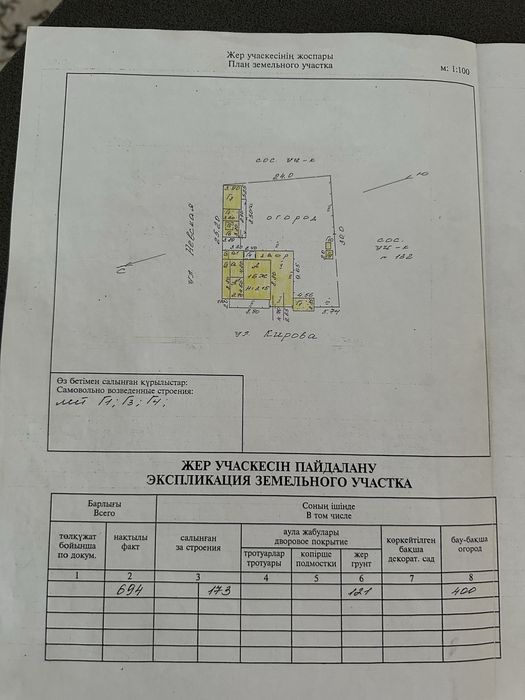 Жер учаскесінің жоспары
План земельного участка
м: 1:100
сос уч-к
24.0
Ю
ул Невская
25.20
огород
30.0
сос.
уч-к
n 152
С
двор
1БЖ
5.74
ул. Кирова
Өз бетімен салынған құрылыстар:
Самовольно возведенные строения:
лит Г1; Г3; Г4;
ЖЕР УЧАСКЕСІН ПАЙДАЛАНУ
ЭКСПЛИКАЦИЯ ЗЕМЕЛЬНОГО УЧАСТКА
Барлығы
Всего
Соның ішінде
В том числе
төлқұжат
бойынша
по докум.
нақтылы
факт
салынған
за строения
аула жабулары
дворовое покрытие
тротуарлар
тротуары
көпірше
подмостки
жер
грунт
көркейтілген
бақша
декорат. сад
бау-бақша
огород
1 2 3 4 5 6 7 8
694 173 121 400